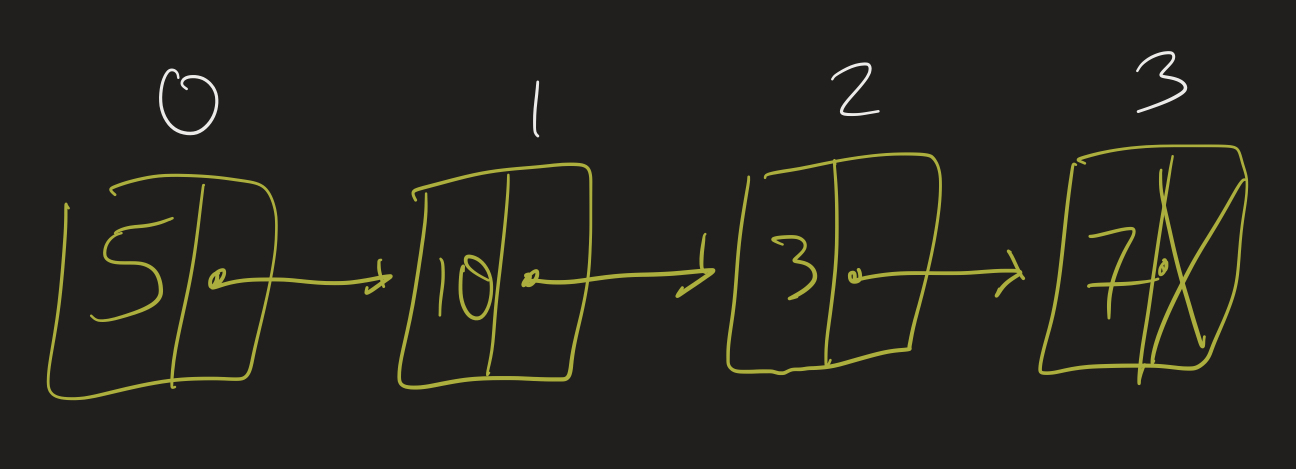 0 1 2 3
5 10 3 7